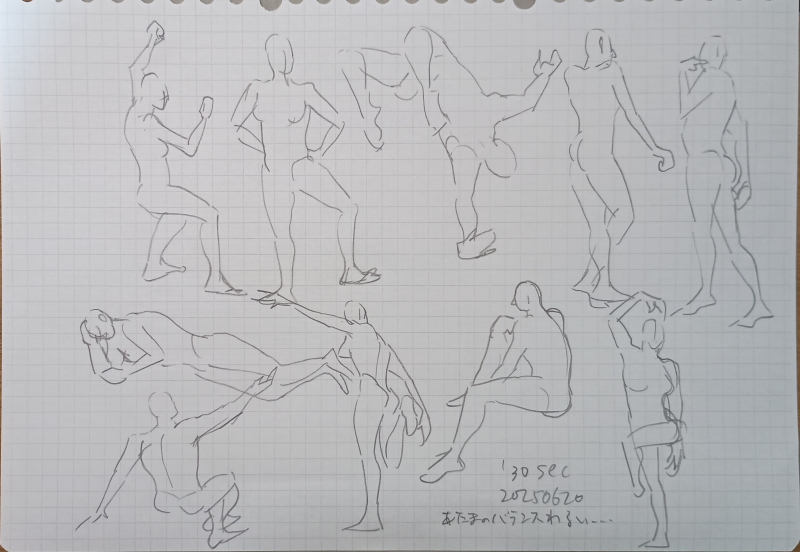 '30 sec
20250620
あたまのバランスわるい....